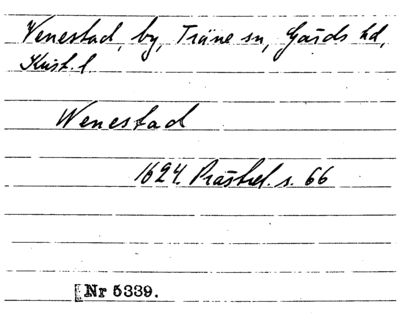 Venestad, by, Träne sn, Gärds hd,
Krist. l.
Wenestad
1624. Prästrel. s. 66
Nr 5339.